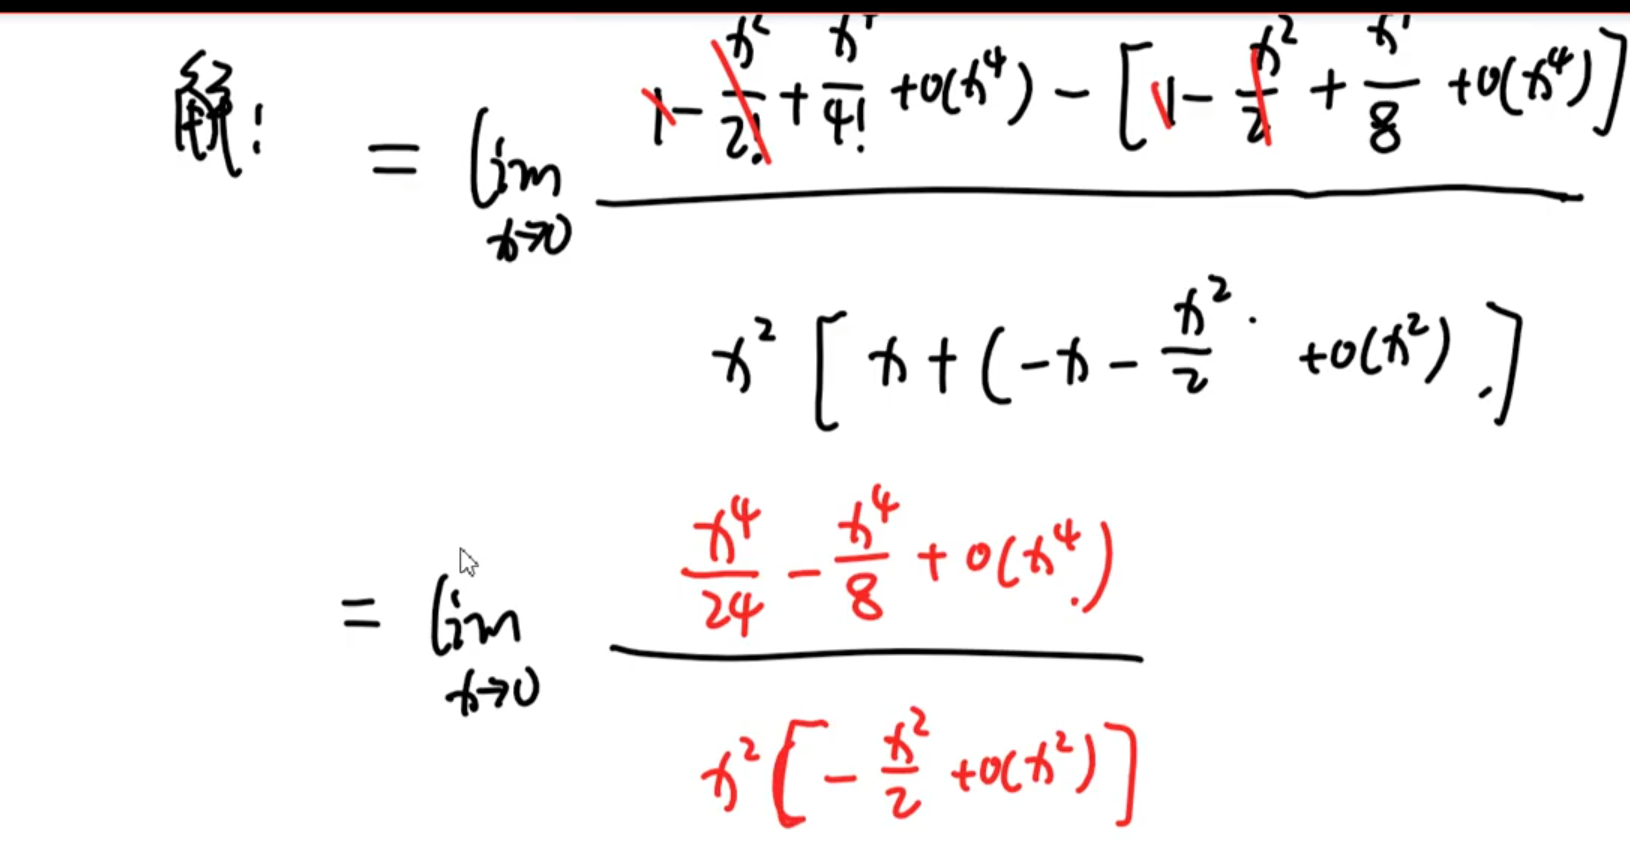 解: = lim x→0 (1 - x²/2! + x⁴/4! + o(x⁴) - [1 - x²/2 + x⁴/8 + o(x⁴)]) / (x² [x + (-x - x²/2 · + o(x²) .])
= lim x→0 (x⁴/24 - x⁴/8 + o(x⁴)) / (x² [-x²/2 + o(x²)])